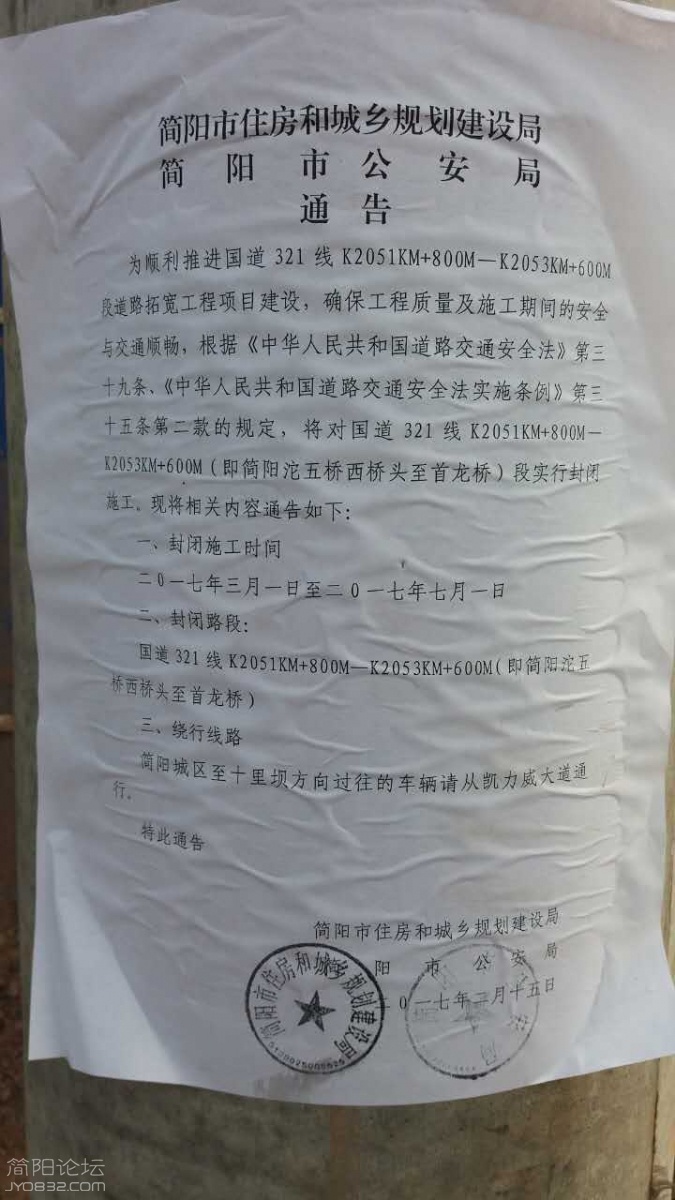 简阳市住房和城乡规划建设局
简阳市公安局
通告
为顺利推进国道321线K2051KM+800M—K2053KM+600M
段道路拓宽工程项目建设，确保工程质量及施工期间的安全
与交通顺畅，根据《中华人民共和国道路交通安全法》第三
十九条、《中华人民共和国道路交通安全法实施条例》第三
十五条第二款的规定，将对国道321线K2051KM+800M—
K2053KM+600M（即简阳沱五桥西桥头至首龙桥）段实行封闭
施工。现将相关内容通告如下：
一、封闭施工时间
二0一七年三月一日至二0一七年七月一日
二、封闭路段：
国道321线K2051KM+800M—K2053KM+600M（即简阳沱五
桥西桥头至首龙桥）
三、绕行线路
简阳城区至十里坝方向过往的车辆请从凯力威大道通
行。
特此通告
简阳市住房和城乡规划建设局
阳市公安局
0一七年二月十五日
简阳市住房和城乡规划建设局
简阳论坛
JY0832.com